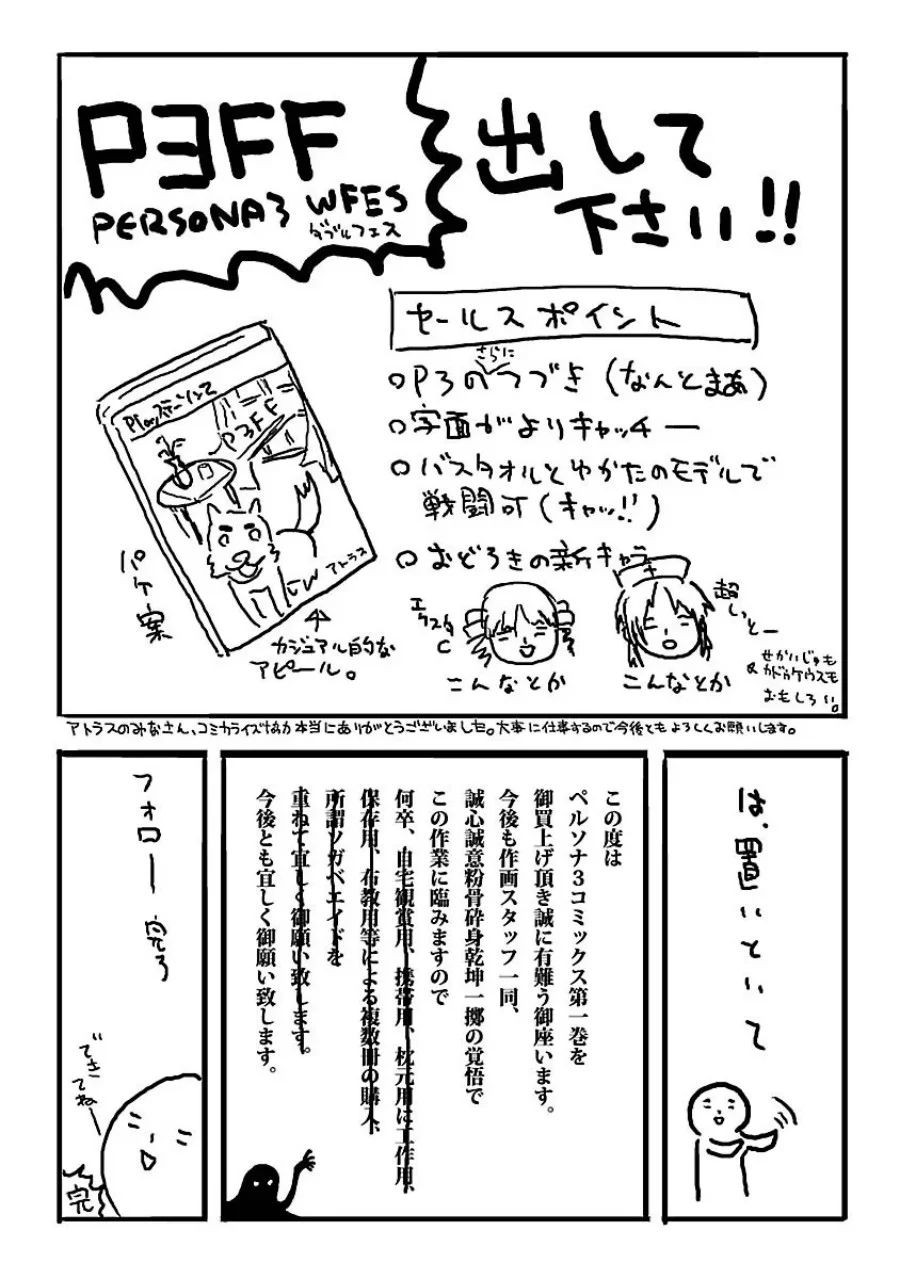 P3FF
PERSONA3 WFES
ダブルフェス
出して
下さい!!
セールスポイント
○P3のさらにつづき(なんとまあ)
○字面がよりキャッチー
○バスタオルとゆかたのモデルで
戦闘可(キャッ!!)
○おどろきの新キャラ
エクスタC
こんなとか
超しっとー
こんなとか
せかいじゅも
&カドゥケウスも
おもしろい。
Playステーション2
P3FF
アトラス
パケ案
カジュアル的な
アピール。
アトラスのみなさん、コミカライズ協力本当にありがとうございました。大事に仕事するので今後ともよろしくお願いします。
は、置いといて
この度は
ペルソナ3コミックス第一巻を
御買上げ頂き誠に有難う御座います。
今後も作画スタッフ一同、
誠心誠意粉骨砕身乾坤一擲の覚悟で
この作業に臨みますので
何卒、自宅観賞用、携帯用、枕元用に工作用、
保存用、布教用等による複数冊の購入、
所謂ソガベエイドを
重ねて宜しく御願い致します。
今後とも宜しく御願い致します。
フォロー完了
できてねー
完